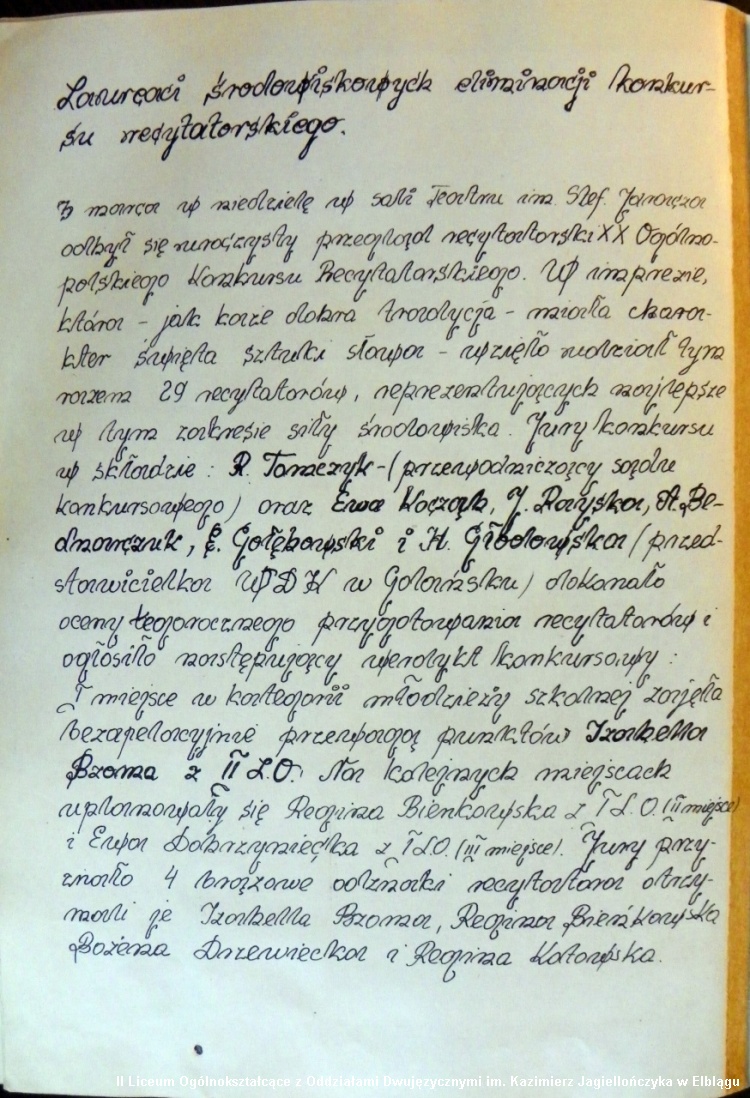 Laureaci środowiskowych eliminacji konkur-
su recytatorskiego.
3 marca w niedzielę w sali Teatru im. Stef. Jaracza
odbył się uroczysty przegląd recytatorski XX Ogólno-
polskiego Konkursu Recytatorskiego. W imprezie,
która - jak każe dobra tradycja - miała charak-
kter święta sztuki słowa - wzięło udział tym
razem 29 recytatorów, reprezentujących najlepsze
w tym zakresie siły środowiska. Jury konkursu
w składzie : R. Tomczyk - (przewodniczący sądu
konkursowego) oraz Ewa J. Rayska, A. Be-
dnarczuk, E. Gołębowski i H. Głodowska (przed-
stawicielka WDK w Gdańsku) dokonało
oceny tegorocznego przygotowania recytatorów i
ogłosiło następujący werdykt konkursowy :
I miejsce w kategorii młodzieży szkolnej zajęła
bezapelacyjnie przewagą punktów Izabella
Bzoma z II L.O. Na kolejnych miejscach
uplanowały się Regina Bieńkowska z I L.O. (II miejsce)
i Ewa Dobrzyniecka z I L.O. (III miejsce). Jury przy-
znało 4 brązowe odznaki recytatora otrzy-
mali je Izabella Bzoma, Regina Bieńkowska
Bożena Drzewiecka i Regina Kotowska.
II Liceum Ogólnokształcące z Oddziałami Dwujęzycznymi im. Kazimierz Jagiellończyka w Elblągu